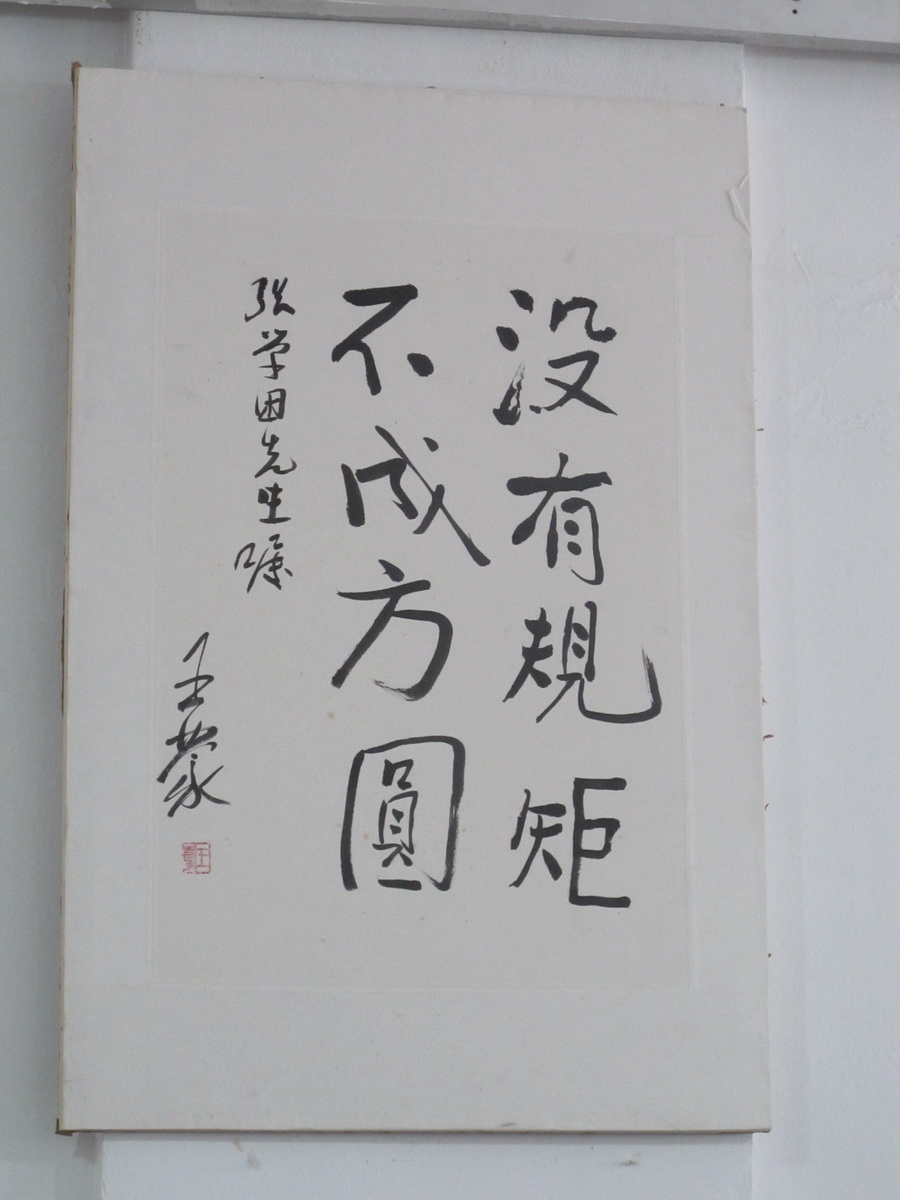 没有規矩
不成方圓
张学困先生嘱
王蒙